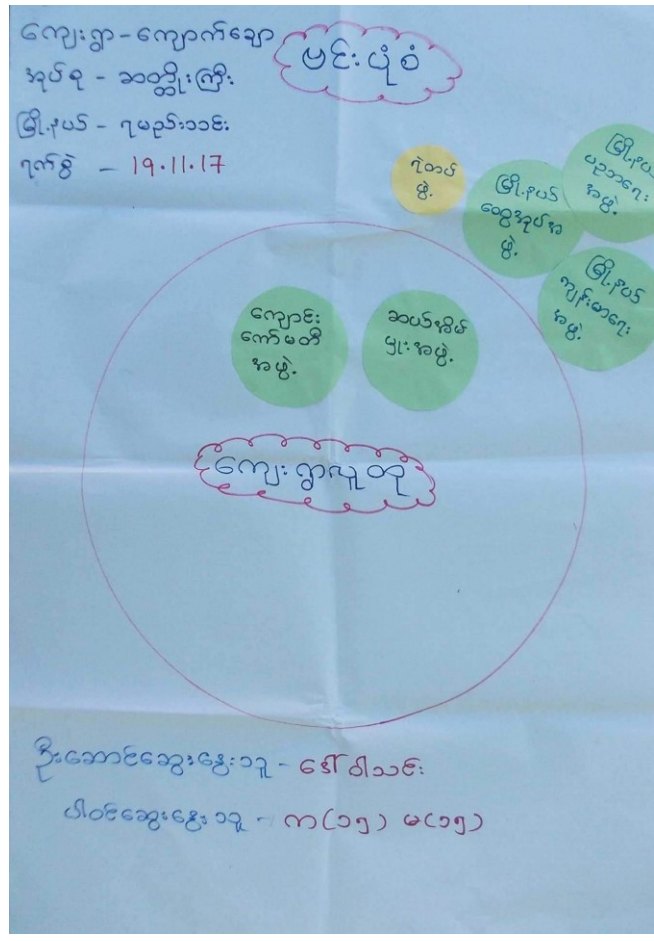 ကျေးရွာ - ကျောက်ချော
အုပ်စု - ဆတ္တိုးကြီး
မြို့နယ် - ရမည်းသင်း
ရက်စွဲ - 19.11.17
ဗင်းပုံစံ
ရဲတပ်
ဖွဲ့
မြို့နယ်
ထွေအုပ်အ
ဖွဲ့
မြို့နယ်
ပညာရေး
အဖွဲ့
မြို့နယ်
ကျန်းမာရေး
အဖွဲ့
ကျောင်း
ကော်မတီ
အဖွဲ့
ဆယ်အိမ်
မှုးအဖွဲ့
ကျေးရွာလူထု
ဦးဆောင်ဆွေးနွေးသူ - ဒေါ်ဝါသင်း
ပါဝင်ဆွေးနွေးသူ - ကျ(၁၅) မ(၁၅)